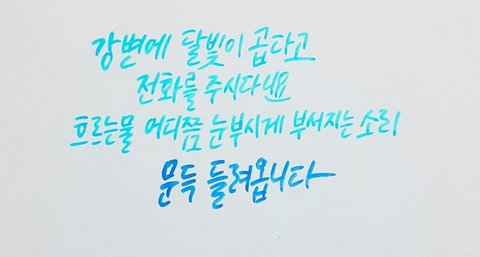 강변에 달빛이 곱다고
전화를 주시다니요
흐르는물 어디쯤 눈부시게 부서지는 소리
문득 들려옵니다